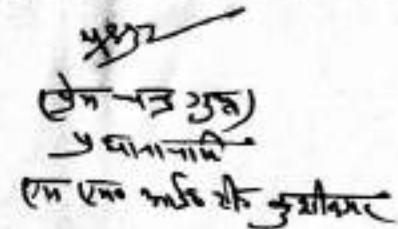 (प्रेम चन्द्र गुप्त)
प्रधानाचार्य
एम एम० आई सी० कुशीनगर